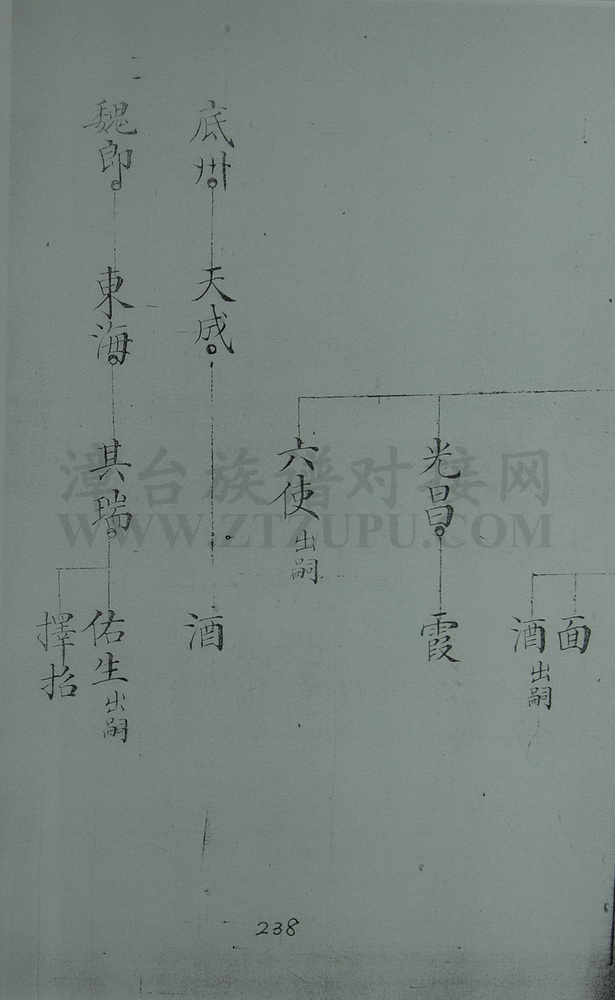 面
酒出嗣
光昌
霞
六使出嗣
底州
天成
酒
魏郎
東海
其瑞
佑生出嗣
擇招
漳台族谱对接网
WWW.ZTZUPU.COM
238